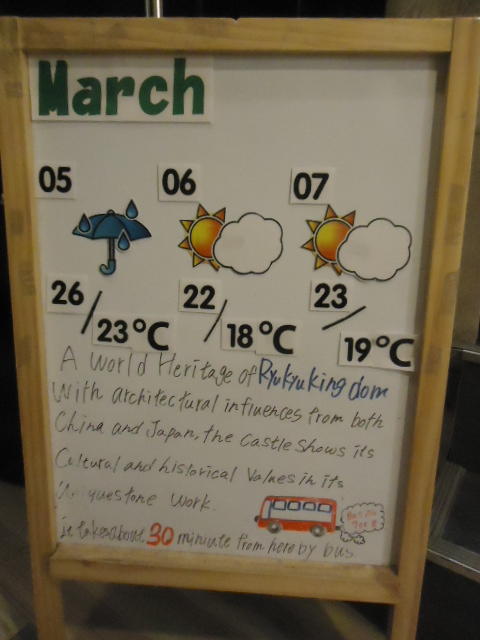 March
05 06 07
26/23°C 22/18°C 23/19°C
A World Heritage of Ryukyu kingdom
With architectural influences from both
China and Japan, the Castle shows its
Cultural and historical Values in its
Unique stone work.
it takes about 30 miniute from here by bus.